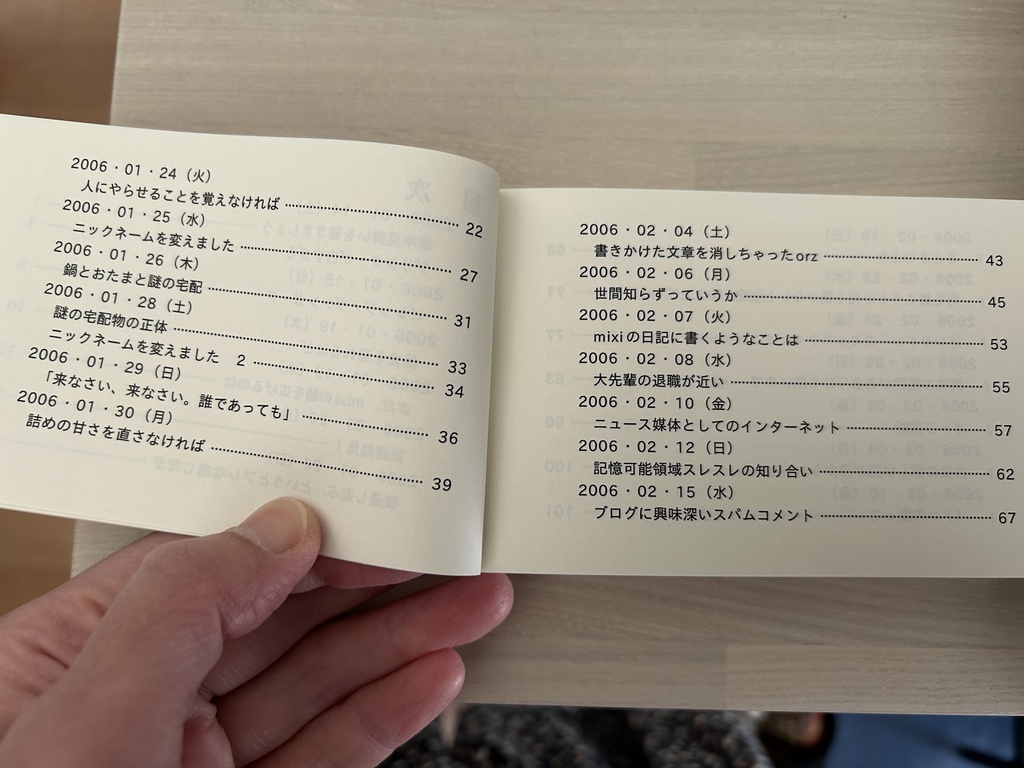 2006・01・24（火）
人にやらせることを覚えなければ 22
2006・01・25（水）
ニックネームを変えました 27
2006・01・26（木）
鍋とおたまと謎の宅配 31
2006・01・28（土）
謎の宅配物の正体 33
ニックネームを変えました　2 34
2006・01・29（日）
「来なさい、来なさい。誰であっても」 36
2006・01・30（月）
詰めの甘さを直さなければ 39
2006・02・04（土）
書きかけた文章を消しちゃったorz 43
2006・02・06（月）
世間知らずっていうか 45
2006・02・07（火）
mixiの日記に書くようなことは 53
2006・02・08（水）
大先輩の退職が近い 55
2006・02・10（金）
ニュース媒体としてのインターネット 57
2006・02・12（日）
記憶可能領域スレスレの知り合い 62
2006・02・15（水）
ブログに興味深いスパムコメント 67